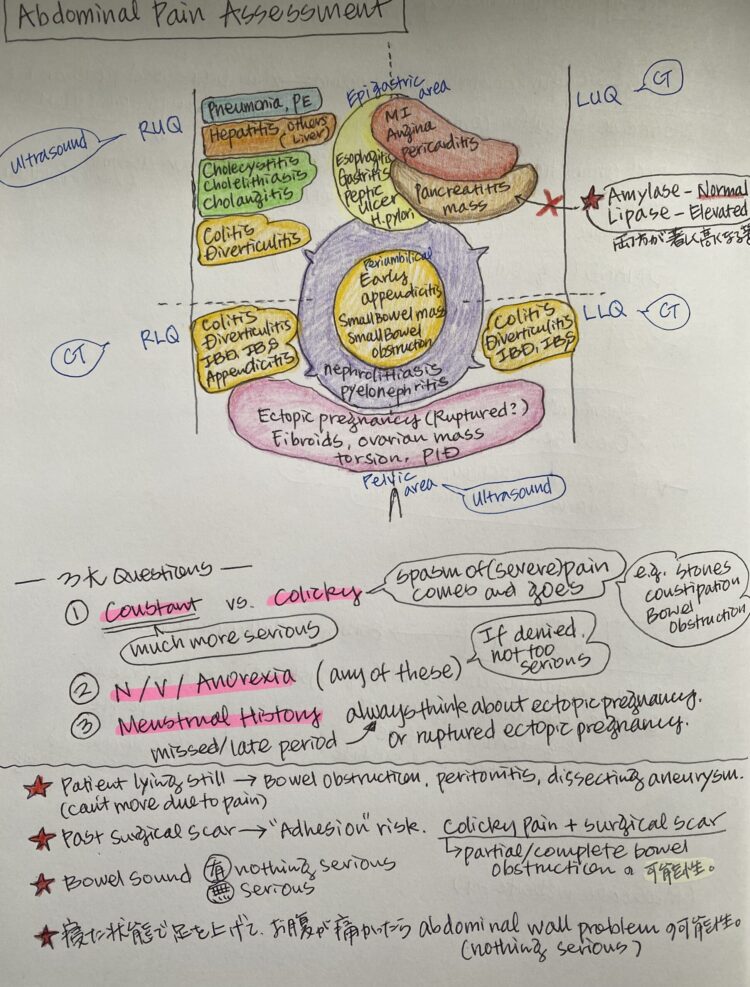 Abdominal Pain Assessment
Ultrasound
RUQ
Pneumonia, PE
Hepatitis, others
(Liver)
Cholecystitis
cholelithiasis
cholangitis
Colitis
Diverticulitis
Epigastric
area
Esophagitis
Gastritis
Peptic
ulcer
H.pylori
MI
Angina
Pericarditis
Pancreatitis
mass
LUQ
CT
Amylase - Normal
Lipase - Elevated
両方が著しく高くなる
Periambilical
Early
appendicitis
Small Bowel mass
Small Bowel
obstruction
nephrolithiasis
pyelonephritis
CT
RLQ
Colitis
Diverticulitis
IBD, IBS
Appendicitis
Colitis
Diverticulitis
IBD, IBS
LLQ
CT
Ectopic pregnancy (Ruptured?)
Fibroids, ovarian mass
torsion, PID
Pelvic
area
Ultrasound
— 3大 Questions —
① Constant vs. Colicky
spasm of (severe) pain
comes and goes
e.g. stones
constipation
Bowel
obstruction
much more serious
② N/V/Anorexia (any of these)
If denied,
not too
serious
③ Menstrual History always think about ectopic pregnancy.
missed/late period or ruptured ectopic pregnancy.
★ Patient lying still → Bowel obstruction, peritonitis, dissecting aneurysm.
(can't move due to pain)
★ Past surgical scar → "Adhesion" risk. Colicky pain + surgical scar
↳ partial/complete bowel
obstruction の可能性。
★ Bowel sound 有 nothing serious
無 serious
★ 寝た状態で足を上げて、お腹が痛かったら abdominal wall problem の可能性。
(nothing serious)